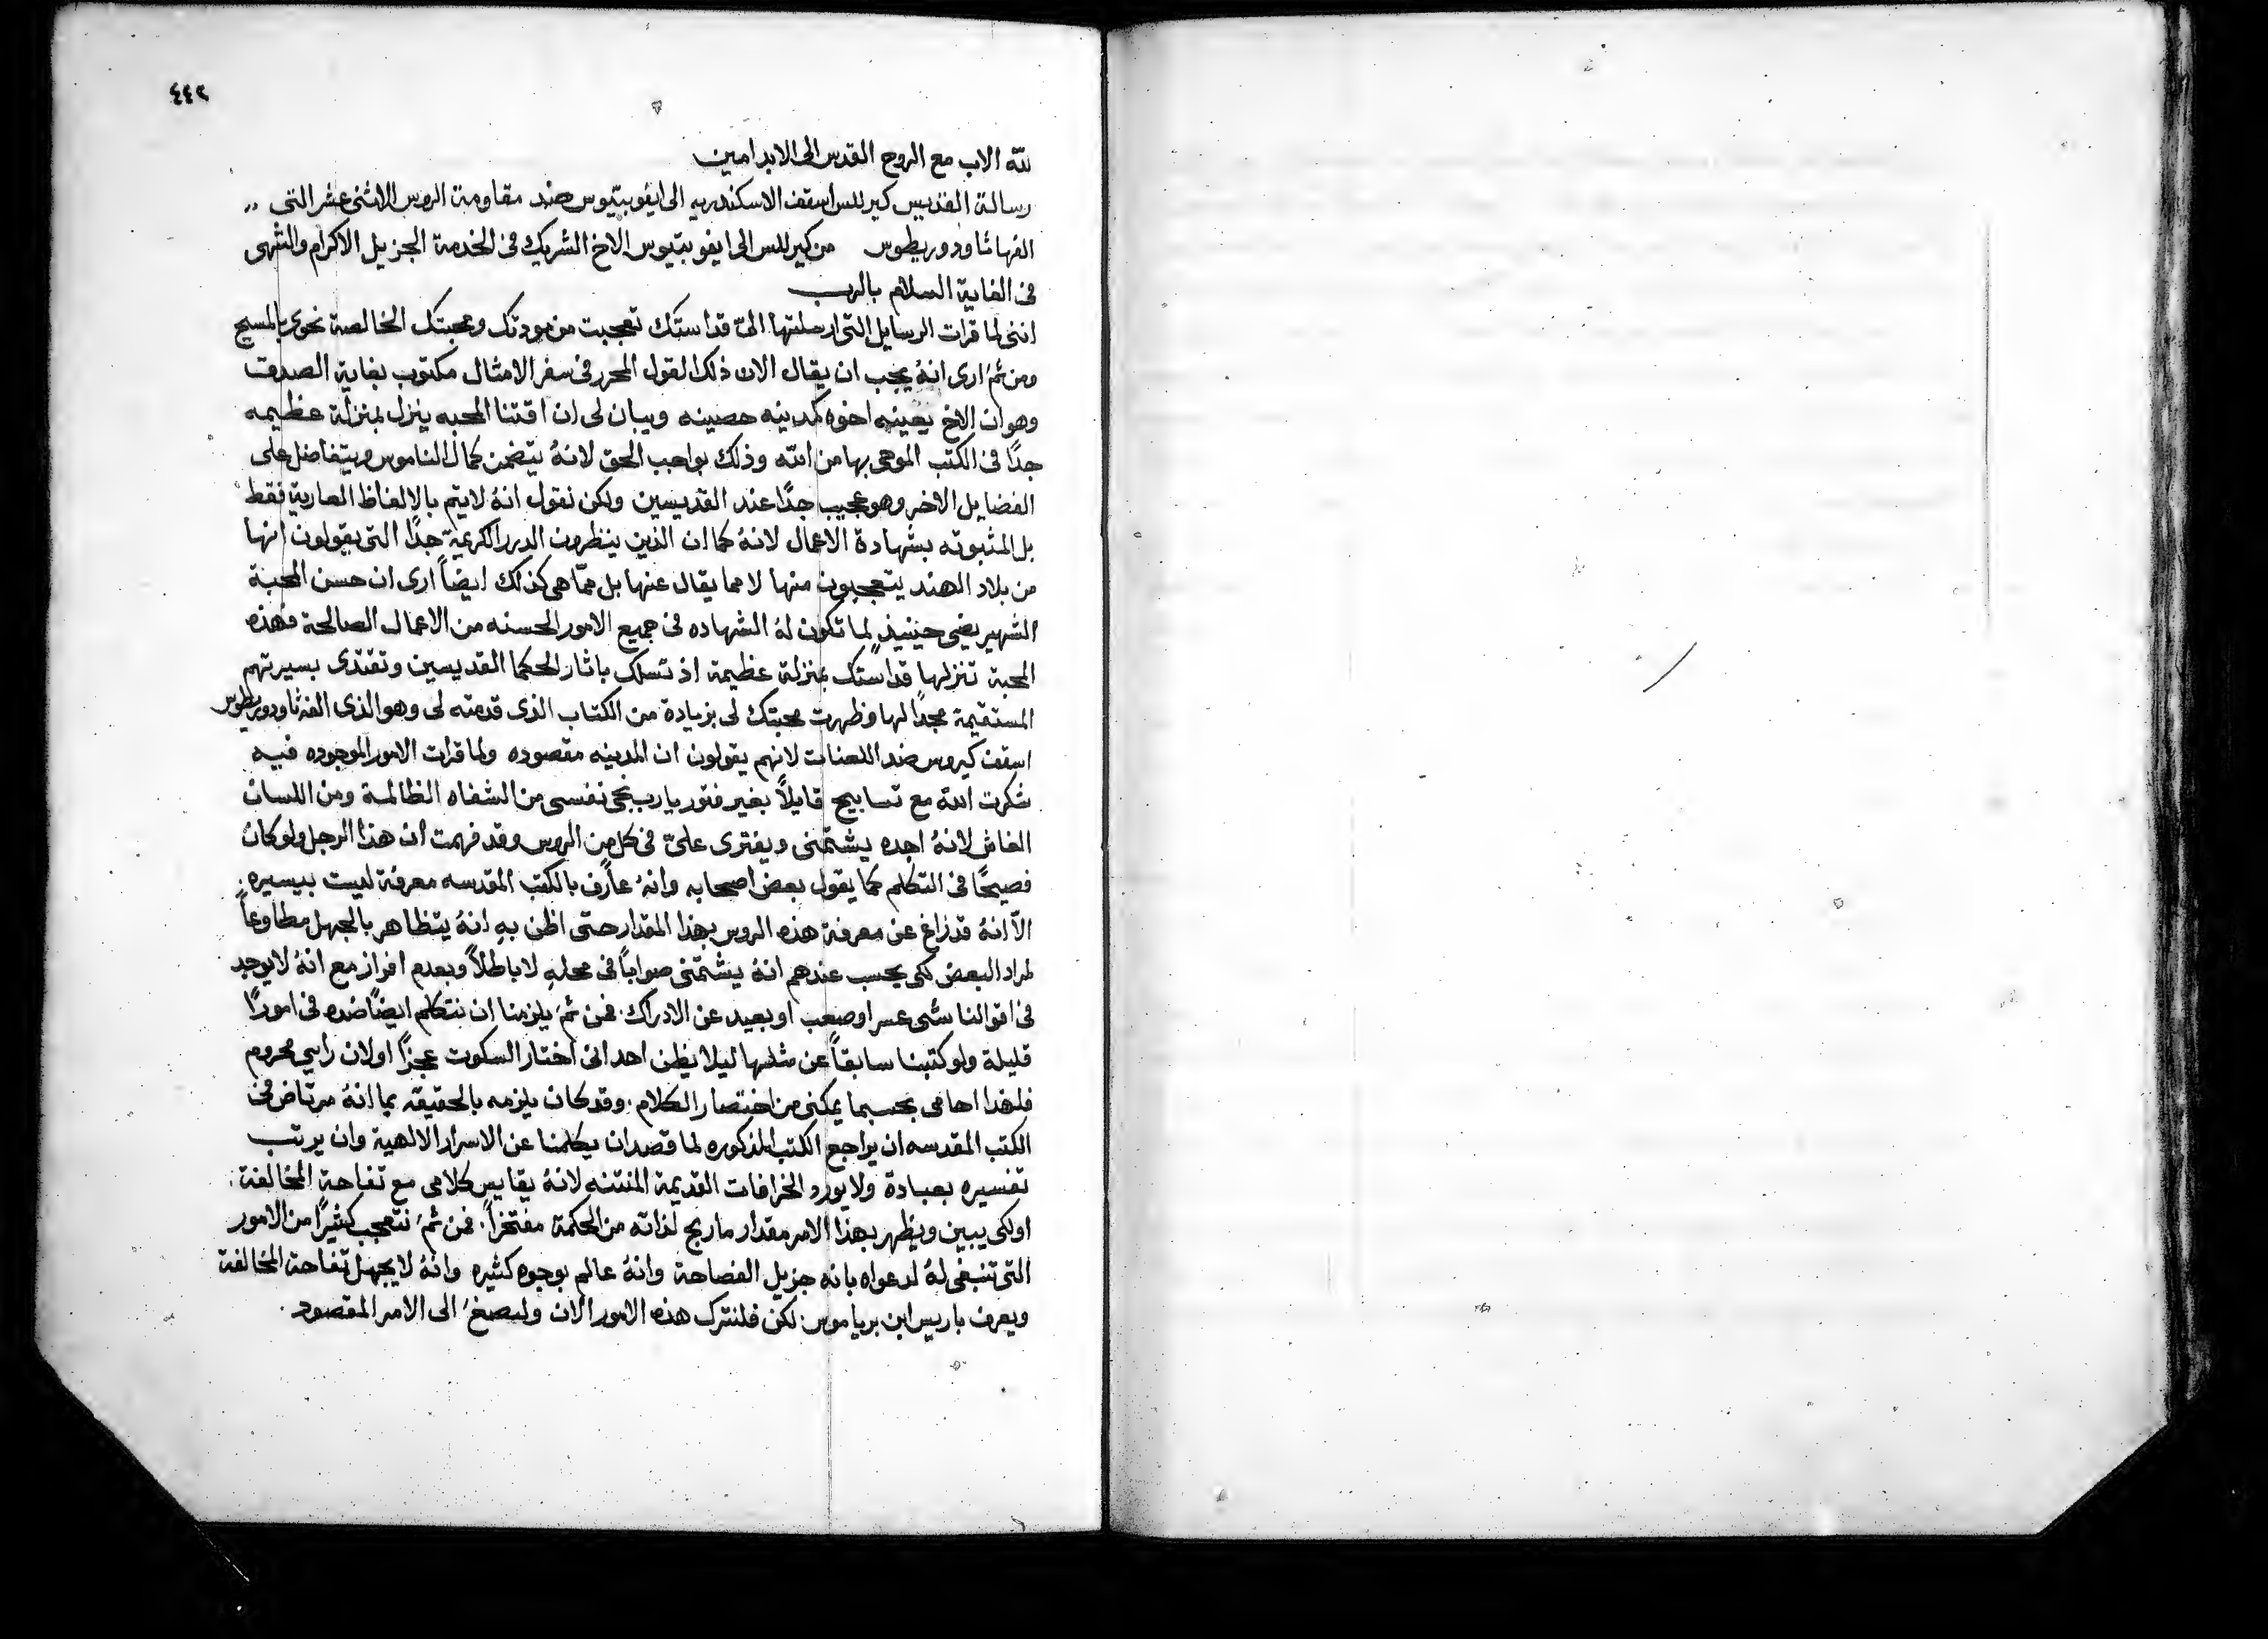 ٤٤٢
لله الاب مع الروح القدس الى الابد امين
رسالة القديس كيرللس اسقف الاسكندريه الى ايفوبتيوس ضد مقاومة الروس الاثنى عشر التى
الفها ثاودوريطوس من كيرللس الى ايفوبتيوس الاخ الشريك فى الخدمة الجزيل الاكرام والشهى
فى الغاية السلام بالرب
اننى لما قرات الرسايل التى ارسلتها الىّ قداستك تعجبت من مودتك ومحبتك الخالصة نحوى بالمسيح
ومن ثمَ ارى انهُ يجب ان يقال الان ذلك القول المحرر فى سفر الامثال مكتوب بغاية الصدق
وهو ان الاخ يعينه اخوه كمدينه حصينه ويبان لى ان اقتنا المحبه ينزل بمنزلة عظيمه
جدًا فى الكتب الموحى بها من الله وذلك بواجب الحق لانهُ يتضمن كمال الناموس ويتفاضل على
الفضايل الاخر وهو عجيب جدًا عند القديسين ولكن نقول انهُ لا يتم بالالفاظ العارية فقط
بل المثبوته بشهادة الاعمال لانهُ كما ان الذين ينظرون الدرر الكريمة جدًا التى يقولون انها
من بلاد الهند يتعجبون منها لا مما يقال عنها بل ممّا هى كذلك ايضاً ارى ان حسن المحبة
الشهير يضى حينيذٍ لما تكون لهُ الشهاده فى جميع الامور الحسنه من الاعمال الصالحة فهذه
المحبة تنزلها قداستك بمنزلة عظيمة اذ تسلك باثار الحكما القديسين وتقتدى بسيرتهم
المستقيمة مجدًا لها وظهرت محبتك لى بزيادة من الكتاب الذى قدمته لى وهو الذى الفه ثاودوريطوس
اسقف كيروس ضد اللعنات لانهم يقولون ان المدينه مقصوده ولما قرات الامور الموجوده فيه
شكرت الله مع تسابيح قايلاً بغير فتور يا رب نجى نفسى من الشفاه الظالمة ومن اللسان
الغاش لانهُ اجده يشتمنى ويفترى علىّ فى كل من الروس وقد فهمت ان هذا الرجل ولو كان
فصيحًا فى التكلم كما يقول بعض اصحابه وانهُ عارف بالكتب المقدسه معرفة ليست بيسيره
الّا انهُ قد زاغ عن معرفة هذه الروس بهذا المقدار حتى اظن بهِ انهُ يتظاهر بالجهل مطاوعاً
لمراد البعض لكى يحسب عندهم انهُ يشتمنى صواباً فى محلهِ لا باطلاً وبعدم افراز مع انهُ لا يوجد
فى اقوالنا شى عسر او صعب او بعيد عن الادراك. فمن ثمَ يلزمنا ان نتكلم ايضًا ضده فى امورًا
قليلة ولو كتبنا سابقاً عن مثلها ليلا يظن احد انى اختار السكوت عجزًا او لان راسى محروم
فلهذا احامى بحسبما يمكنى من اختصار الكلام. وقد كان يلزمه بالحقيقه بما انهُ مرتاض فى
الكتب المقدسه ان يراجع الكتب المذكوره لما قصد ان يكلمنا عن الاسرار الالهية وان يرتب
تفسيره بعبادة ولا يورد الخرافات القديمة المنتنه لانهُ يقايس كلامى مع تفاحة المخالفة.
او لكى يبين ويظهر بهذا الامر مقدار ما ربح لذاته من الحكمة مفتخرًا. فمن ثمَ نتعجب كثيرًا من الامور
التى تنبغى لهُ لدعواه بانه جزيل الفصاحة وانهُ عالم بوجوه كثيره وانهُ لا يجهل تفاحة المخالفة
ويعرف باريس ابن برياموس. لكن فلنترك هذه الامور الان ولنصغَ الى الامر المقصود.